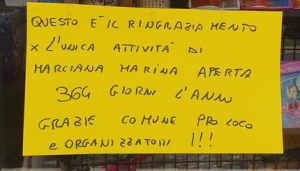 QUESTO E' IL RINGRAZIAMENTO
x L'UNICA ATTIVITÀ DI
MARCIANA MARINA APERTA
364 GIORNI L'ANNO
GRAZIE COMUNE PRO LOCO
e ORGANIZZATORI !!!